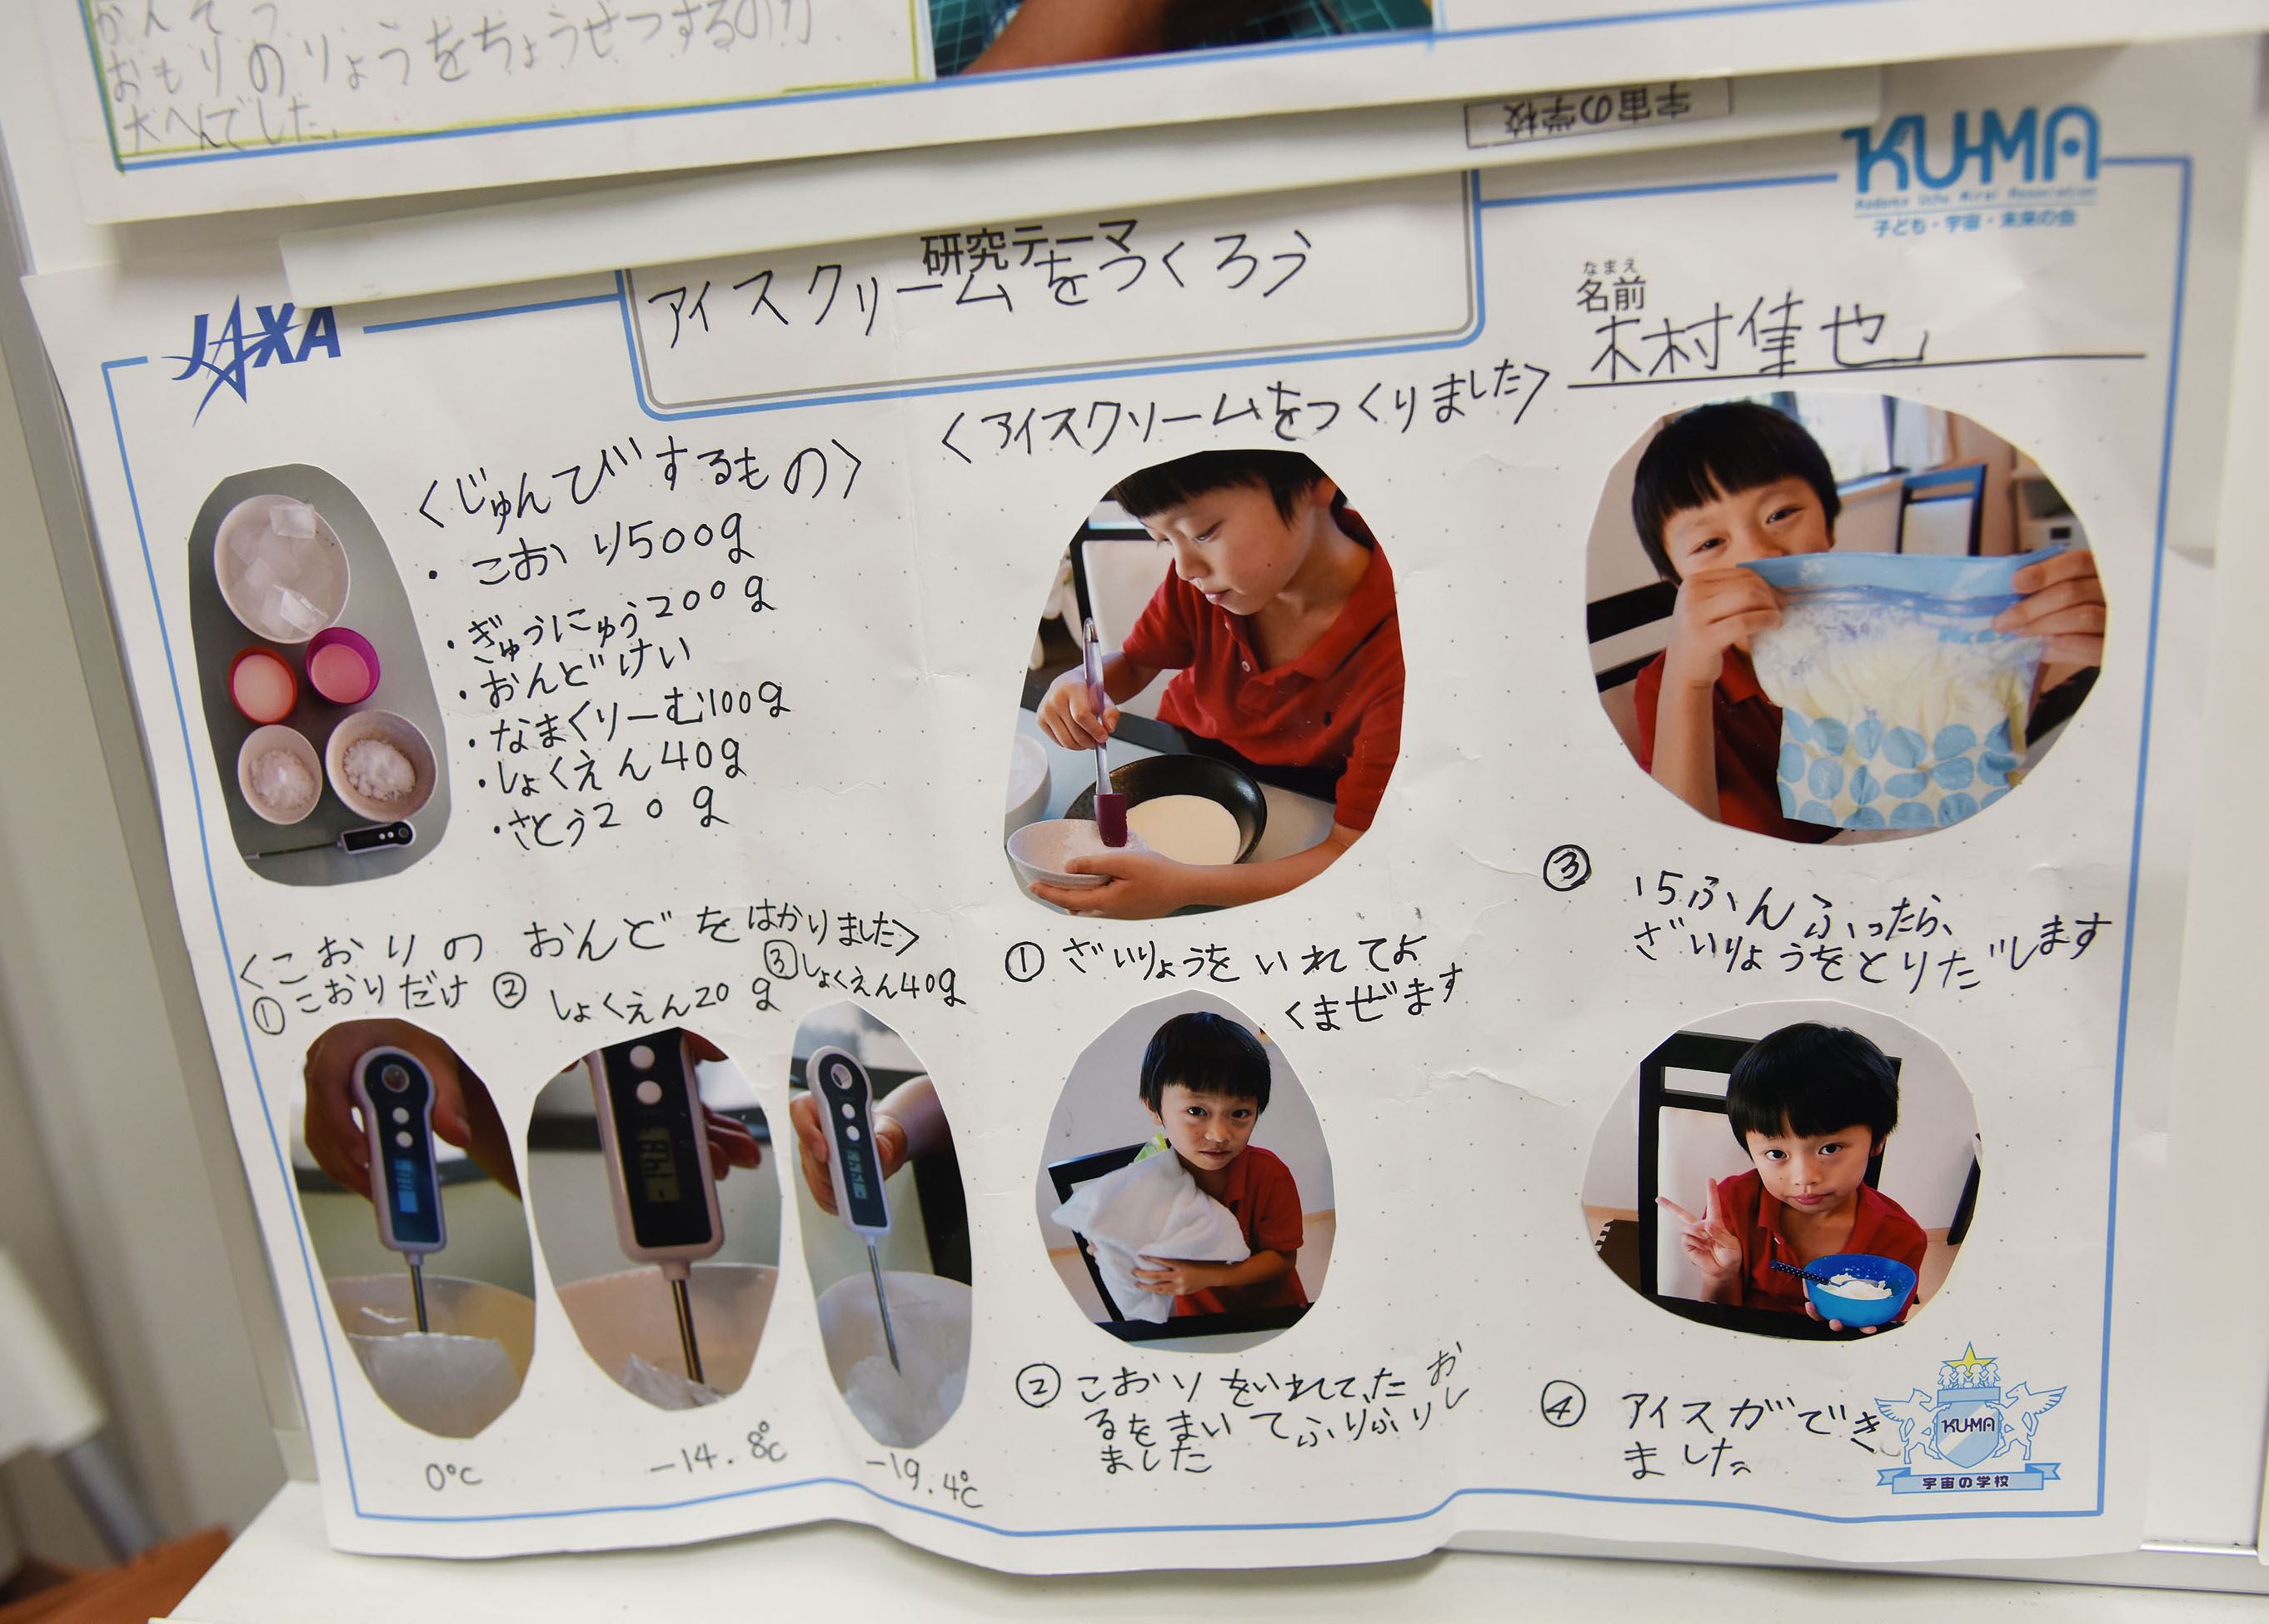 おもりのりょうをちょうせつするのが
大へんでした。
宇宙の学校
KUMA
Kodomo Uchu Mirai Association
子ども・宇宙・未来の会
JAXA
研究テーマ
アイスクリームをつくろう
なまえ
名前
木村佳也
〈じゅんびするもの〉
・こおり500g
・ぎゅうにゅう200g
・おんどけい
・なまくりーむ100g
・しょくえん40g
・さとう20g
〈こおりのおんどをはかりました〉
①こおりだけ
②しょくえん20g
③しょくえん40g
0℃
-14.8℃
-19.4℃
〈アイスクリームをつくりました〉
①ざいりょうをいれてよ
くまぜます
②こおりをいれて、たお
るをまいてふりふりし
ました
③15ふんふったら、
ざいりょうをとりだします
④アイスができ
ました
KUMA
宇宙の学校